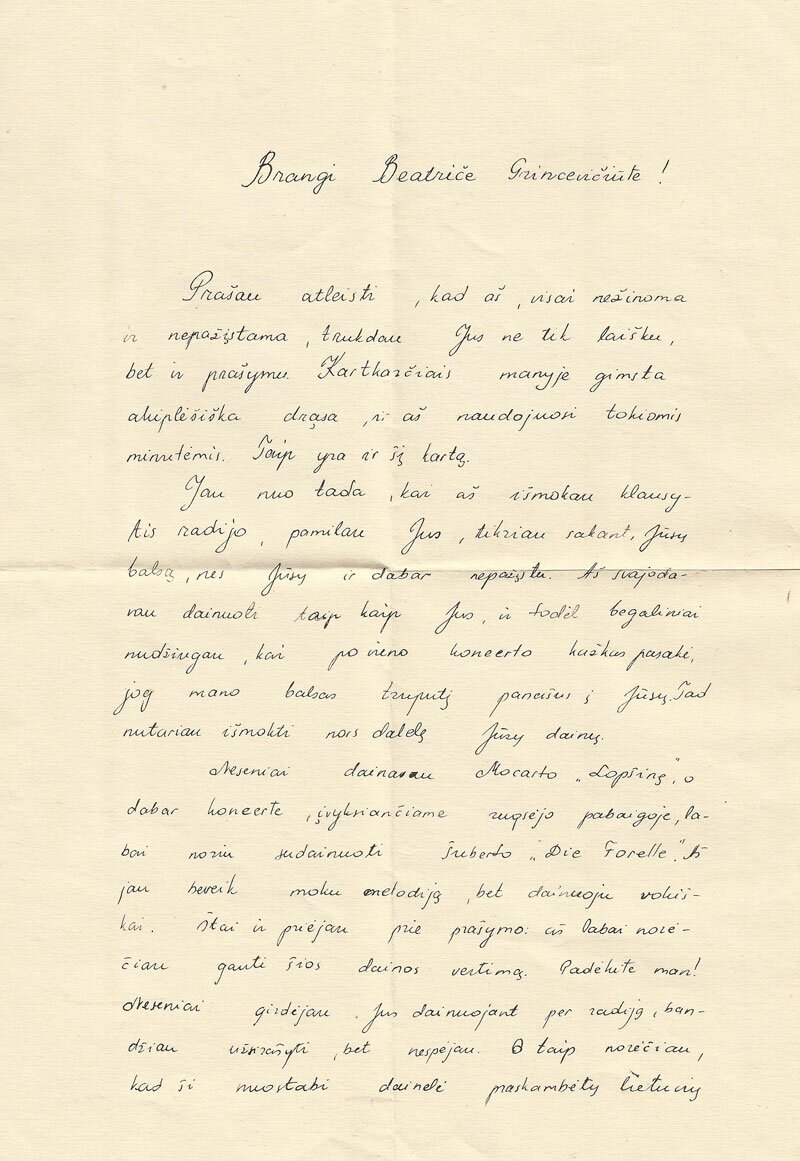 Brangi Beatriče Grincevičiūte!
Prašau atleisti, kad aš, visai nežinoma
ir nepažįstama, trukdau Jus ne tik laišku,
bet ir prašymu. Kartkarčiais manyje gimsta
akiplėšiška drąsa, ir aš naudojuosi tokiomis
minutėmis. Taip yra ir šį kartą.
Jau nuo tada, kai aš išmokau klausy-
tis radijo, pamilau Jus, tikriau sakant, Jūsų
balsą, nes Jūsų ir dabar nepažįstu. Aš svajoda-
vau dainuoti taip kaip Jus, ir todėl begaliniai
nudžiugau, kai po vieno koncerto kažkas pasakė,
jog mano balsas truputį panašus į Jūsų. Tad
nutariau išmokti nors dalelę Jūsų dainų.
Neseniai dainavau Mocarto „Lopšinę", o
dabar koncerte, įvyksiančiame rugsėjo pabaigoje, la-
bai noriu sudainuoti Šuberto „Die Forelle". Aš
jau beveik moku melodiją, bet dainuoju vokiš-
kai. Štai ir priėjau prie prašymo: aš labai norė-
čiau gauti šios dainos vertimą. Padėkite man!
Neseniai girdėjau Jus dainuojant per radiją, ban-
džiau užsirašyti, bet nespėjau. O taip norėčiau,
kad ši nuostabi dainelė praskambėtų lietuvių